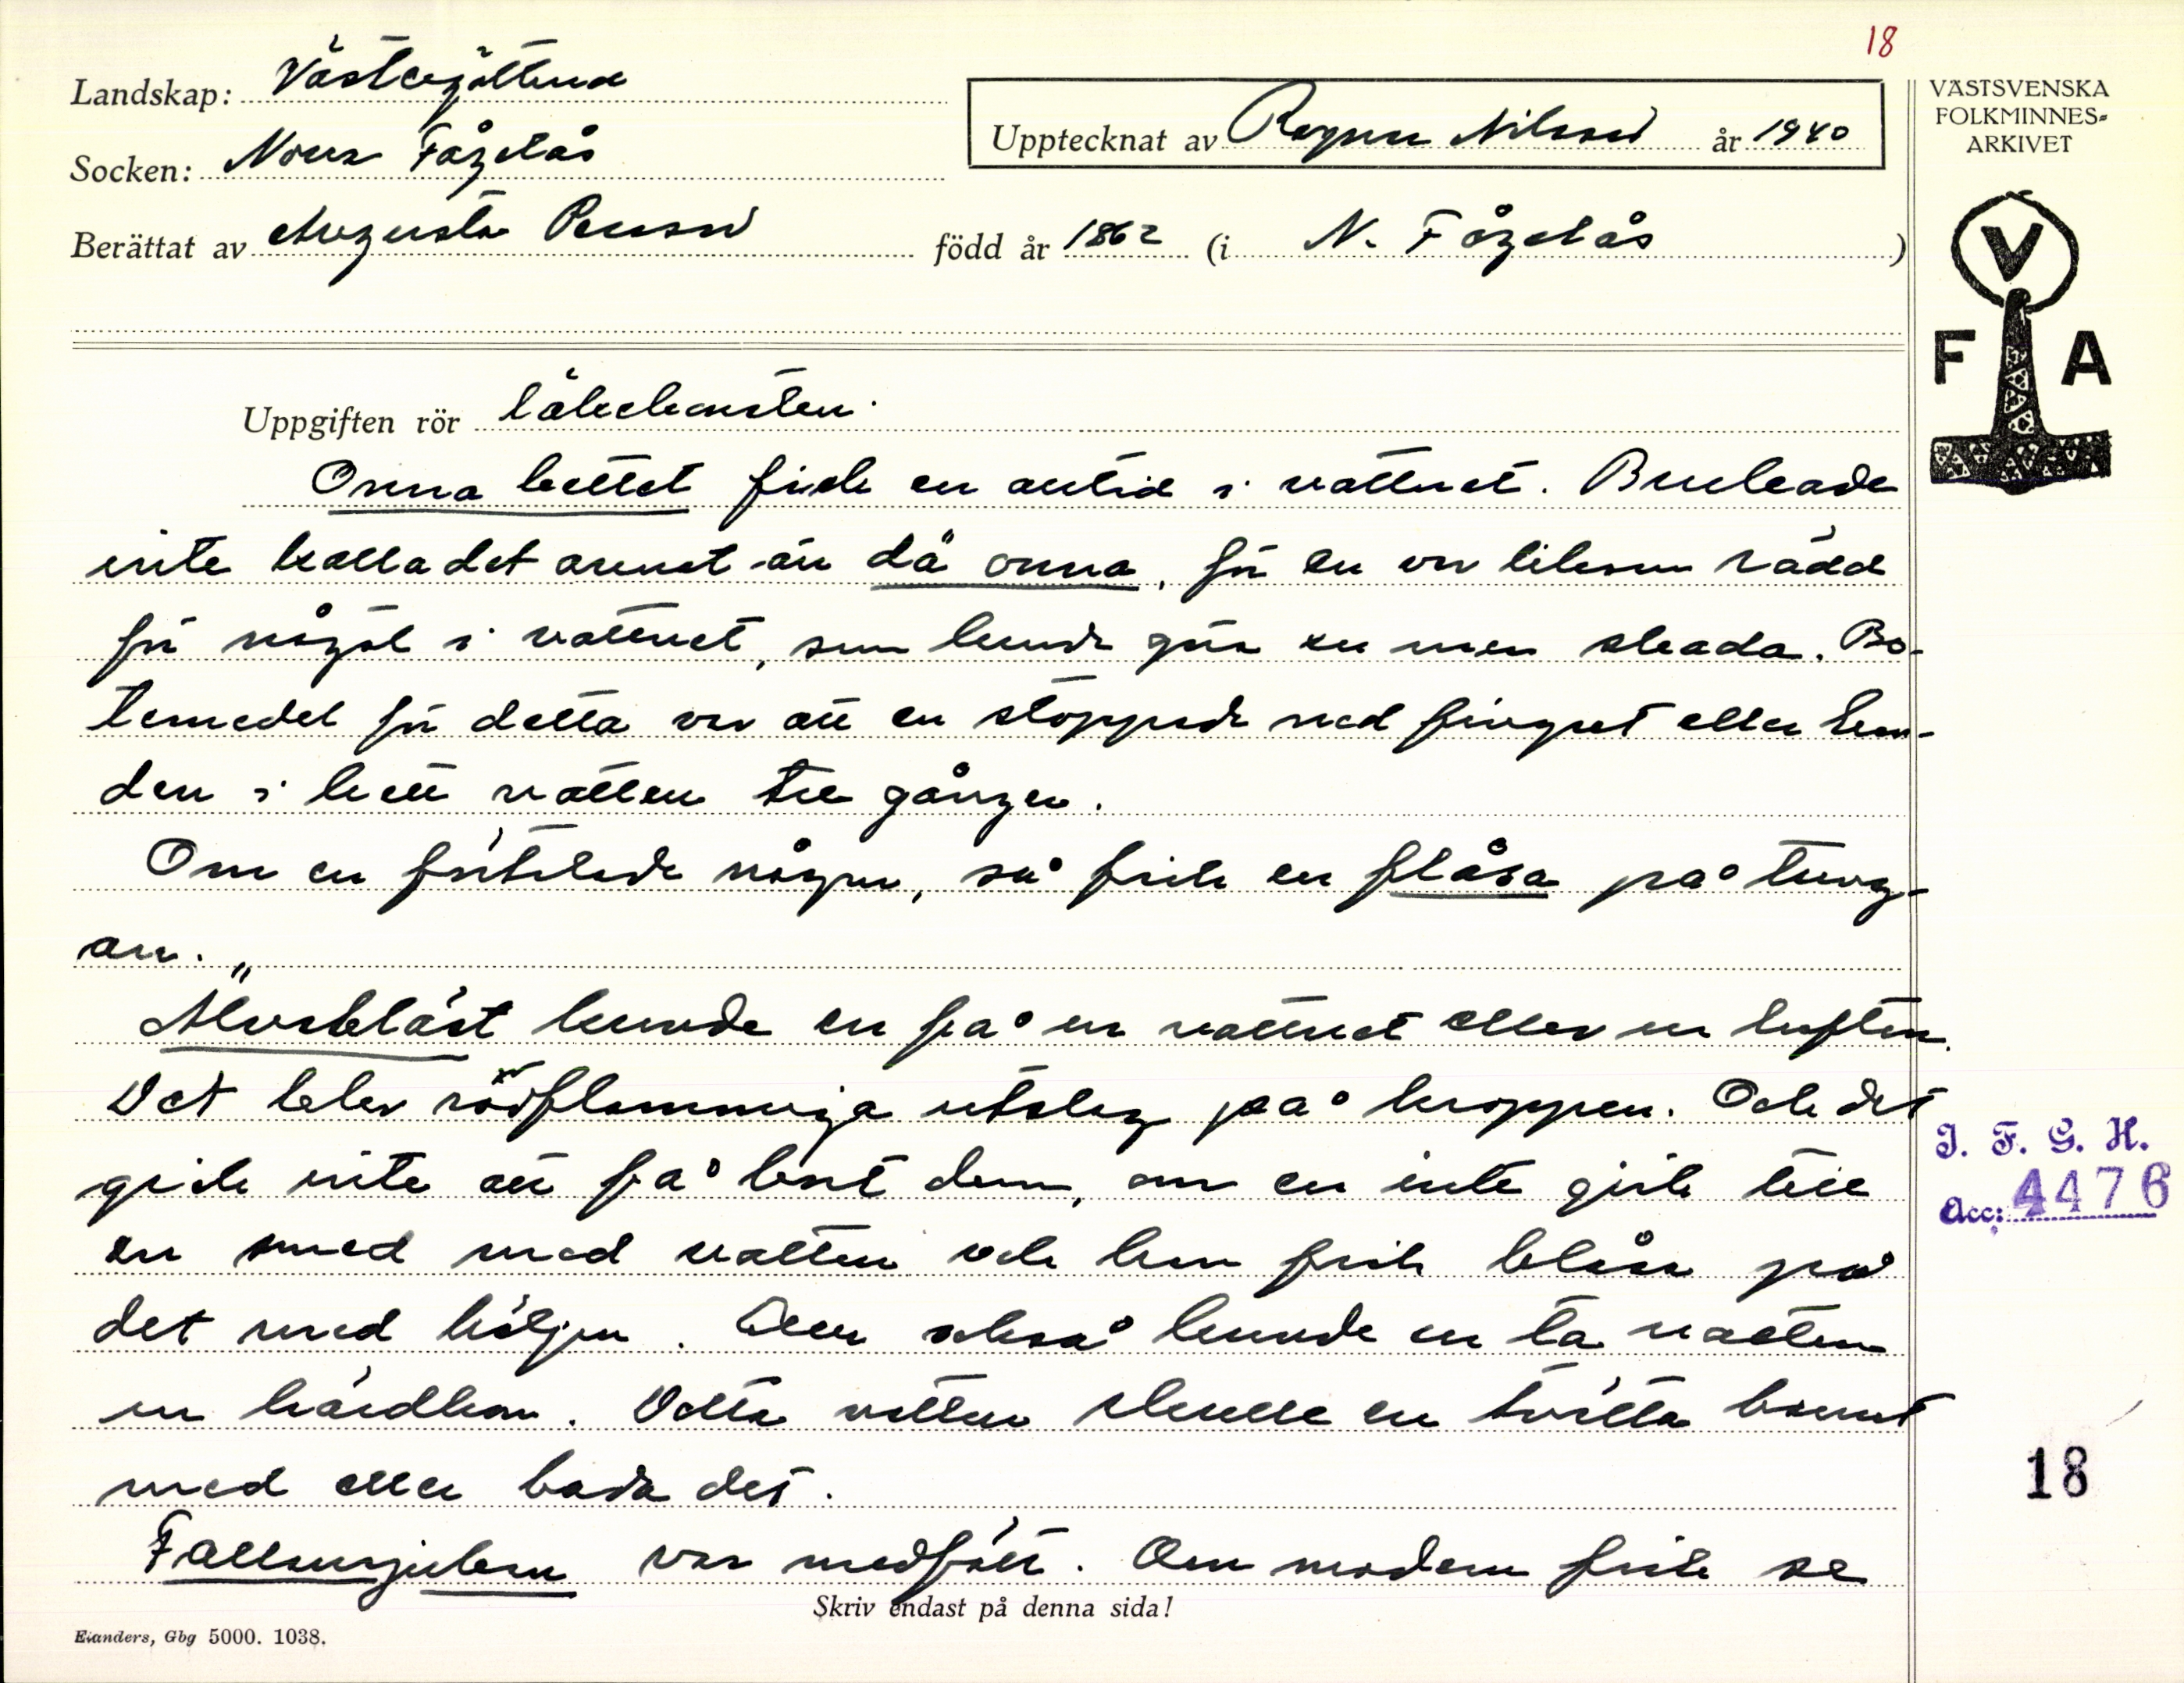 18
Landskap: Västergötland
Upptecknat av Ragnar Nilsson år 1940
Socken: Norra Fågelås
Berättat av Augusta Persson född år 1862 (i N. Fågelås)
VÄSTSVENSKA
FOLKMINNES-
ARKIVET
V
F A
Uppgiften rör läkekonsten.
Onna bettet fick en alltid i vattnet. Brukade
inte kalla det annat än dä onna, för en var liksom rädd
för något i vattnet, som kunde göra en men skada. Bo-
temedel för detta var att en stoppade ned fingret eller han-
den i hett vatten tre gånger.
Om en förtalade någon, så fick en flåsa på tung-
an.
Älvablåst kunde en få ur vattnet eller ur luften.
Det blev rödflammiga utslag på kroppen. Och det
gick inte att få bort dem, om en inte gick till
en smed med vatten och han fick blåsa på
det med bälgen. Men också kunde en ta vatten
ur härdhon. Detta vatten skulle en tvätta barnet
med eller bada det.
Fallsnusjukan var medfött. Om modern fick se
Skriv endast på denna sida!
J. F. G. H.
Acc: 4476
18
Elanders, Gbg 5000. 1038.